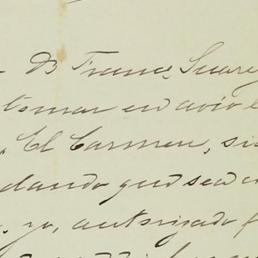 D. Franco Suarez
tomar en avio e
El Carmen, si
dando que sea
yo, autorizado p